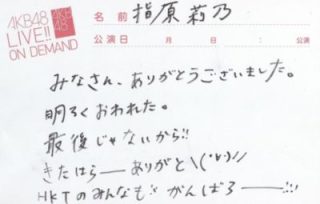 AKB48
LIVE!!
ON DEMAND
AKB
48
名前 指原莉乃
公演日 月 日 : 公演
みなさん、ありがとうございました。
明るくおわれた。
最後じゃないから!!
きたはらーありがと\(^o^)//
HKTのみんなも!! がんばろーー!!!